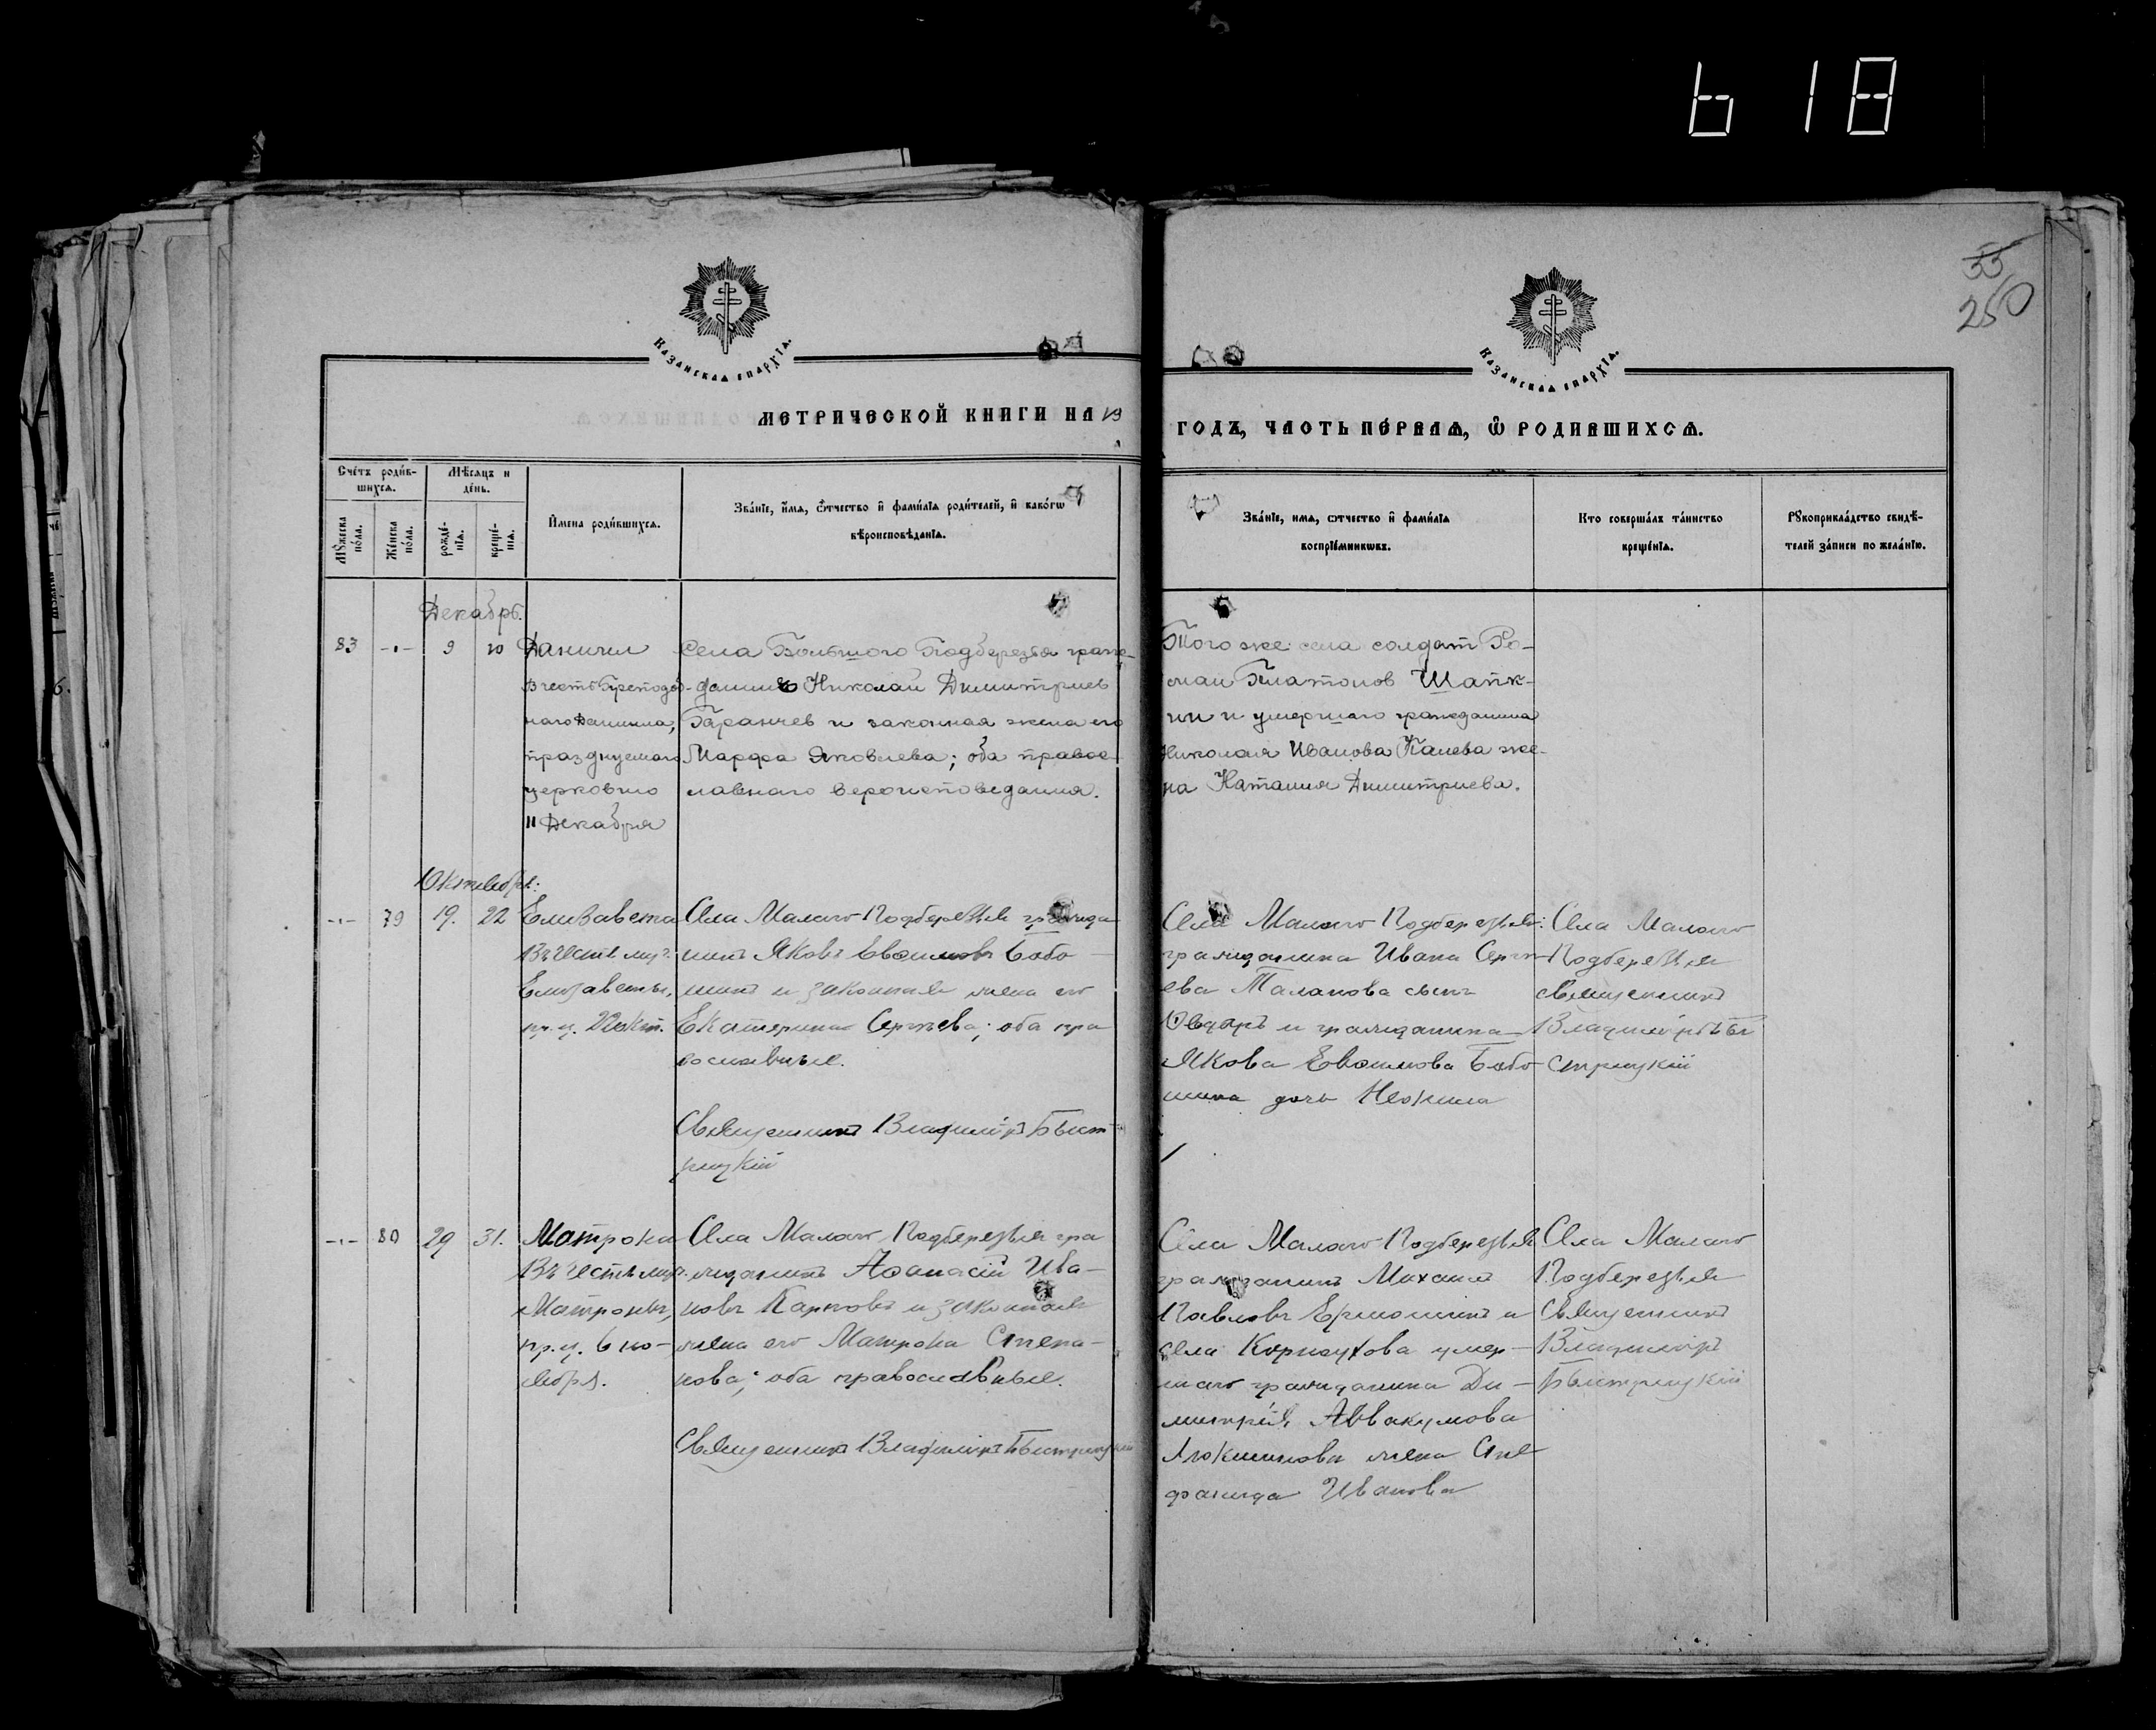 618
55
250
КАЗАНСКАЯ ЕПАРХІЯ.
КАЗАНСКАЯ ЕПАРХІЯ.
МЕТРИЧЕСКОЙ КНИГИ НА 19
ГОДЪ, ЧАСТЬ ПЕ́РВАЯ, Ѿ РОДИВШИХСЯ.
Сче́тъ роди́в-
шихся.
Мѣ́сяцъ и
де́нь.
Мꙋ́жеска
по́ла.
Же́нска
по́ла.
рожде́-
нїя.
креще́-
нїя.
И҆мена роди́вшихся.
Зва́нїе, и҆́мя, ѻ҆́тчество и҆ фами́лїя роди́телей, и҆ како́гѡ
вѣроисповѣ́данїя.
Зва́нїе, имя, ѻтчество и҆ фами́лїя
воспрїе́мникѡвъ.
Кто соверша́лъ та́инство
креще́нїя.
Рꙋкоприкла́дство свидѣ́-
телей за́писи по жела́нїю.
Декабрь.
83 -„- 9 10 Даниил
В честь Преподоб-
наго Даниила,
празднуемаго
церковию
11 Декабря
Села Большого Подберезья граж-
данин Николай Димитриев
Баранчев и законная жена его
Марфа Яковлева; оба право-
славнаго вероисповедания.
Того же села солдат Ро-
ман Платонов Шапк-
ин и умершаго гражданина
Николая Иванова Панева же-
на Наталия Димитриева.
Октябрь:
-„- 79 19. 22 Елизавета
Въ честь муч.
Елизаветы,
пр. ц. 22 окт.
Села Малаго Подберезья гражда
нинъ Яковъ Евѳимовъ Бобо-
шинъ и законная жена его
Екатерина Сергѣева; оба пра
вославные.
Священникъ Владиміръ Быст-
рицкій
Села Малаго Подберезья:
гражданина Ивана Серги-
ева Таланова сынъ
Ѳедоръ и гражданина
Якова Евѳимова Бобо
шина дочь Неонила
Села Малаго
Подберезья
священникъ
Владиміръ Бы
стрицкій
-„- 80 29 31. Матрона
Въ честь муч.
Матроны,
пр. ц. 6 но-
ября.
Села Малаго Подберезья гра
жданинъ Аѳанасій Ива-
новъ Карповъ и законная
жена его Матрона Степа-
нова; оба православные.
Священникъ Владиміръ Быстрицкій
Села Малаго Подберезья
гражданинъ Михаилъ
Павловъ Ермошинъ и
села Корноухова умер-
шаго гражданина Ди-
митрія Аввакумова
жена Сте
фанида Иванова
Села Малаго
Подберезья
Священникъ
Владиміръ
Быстрицкій